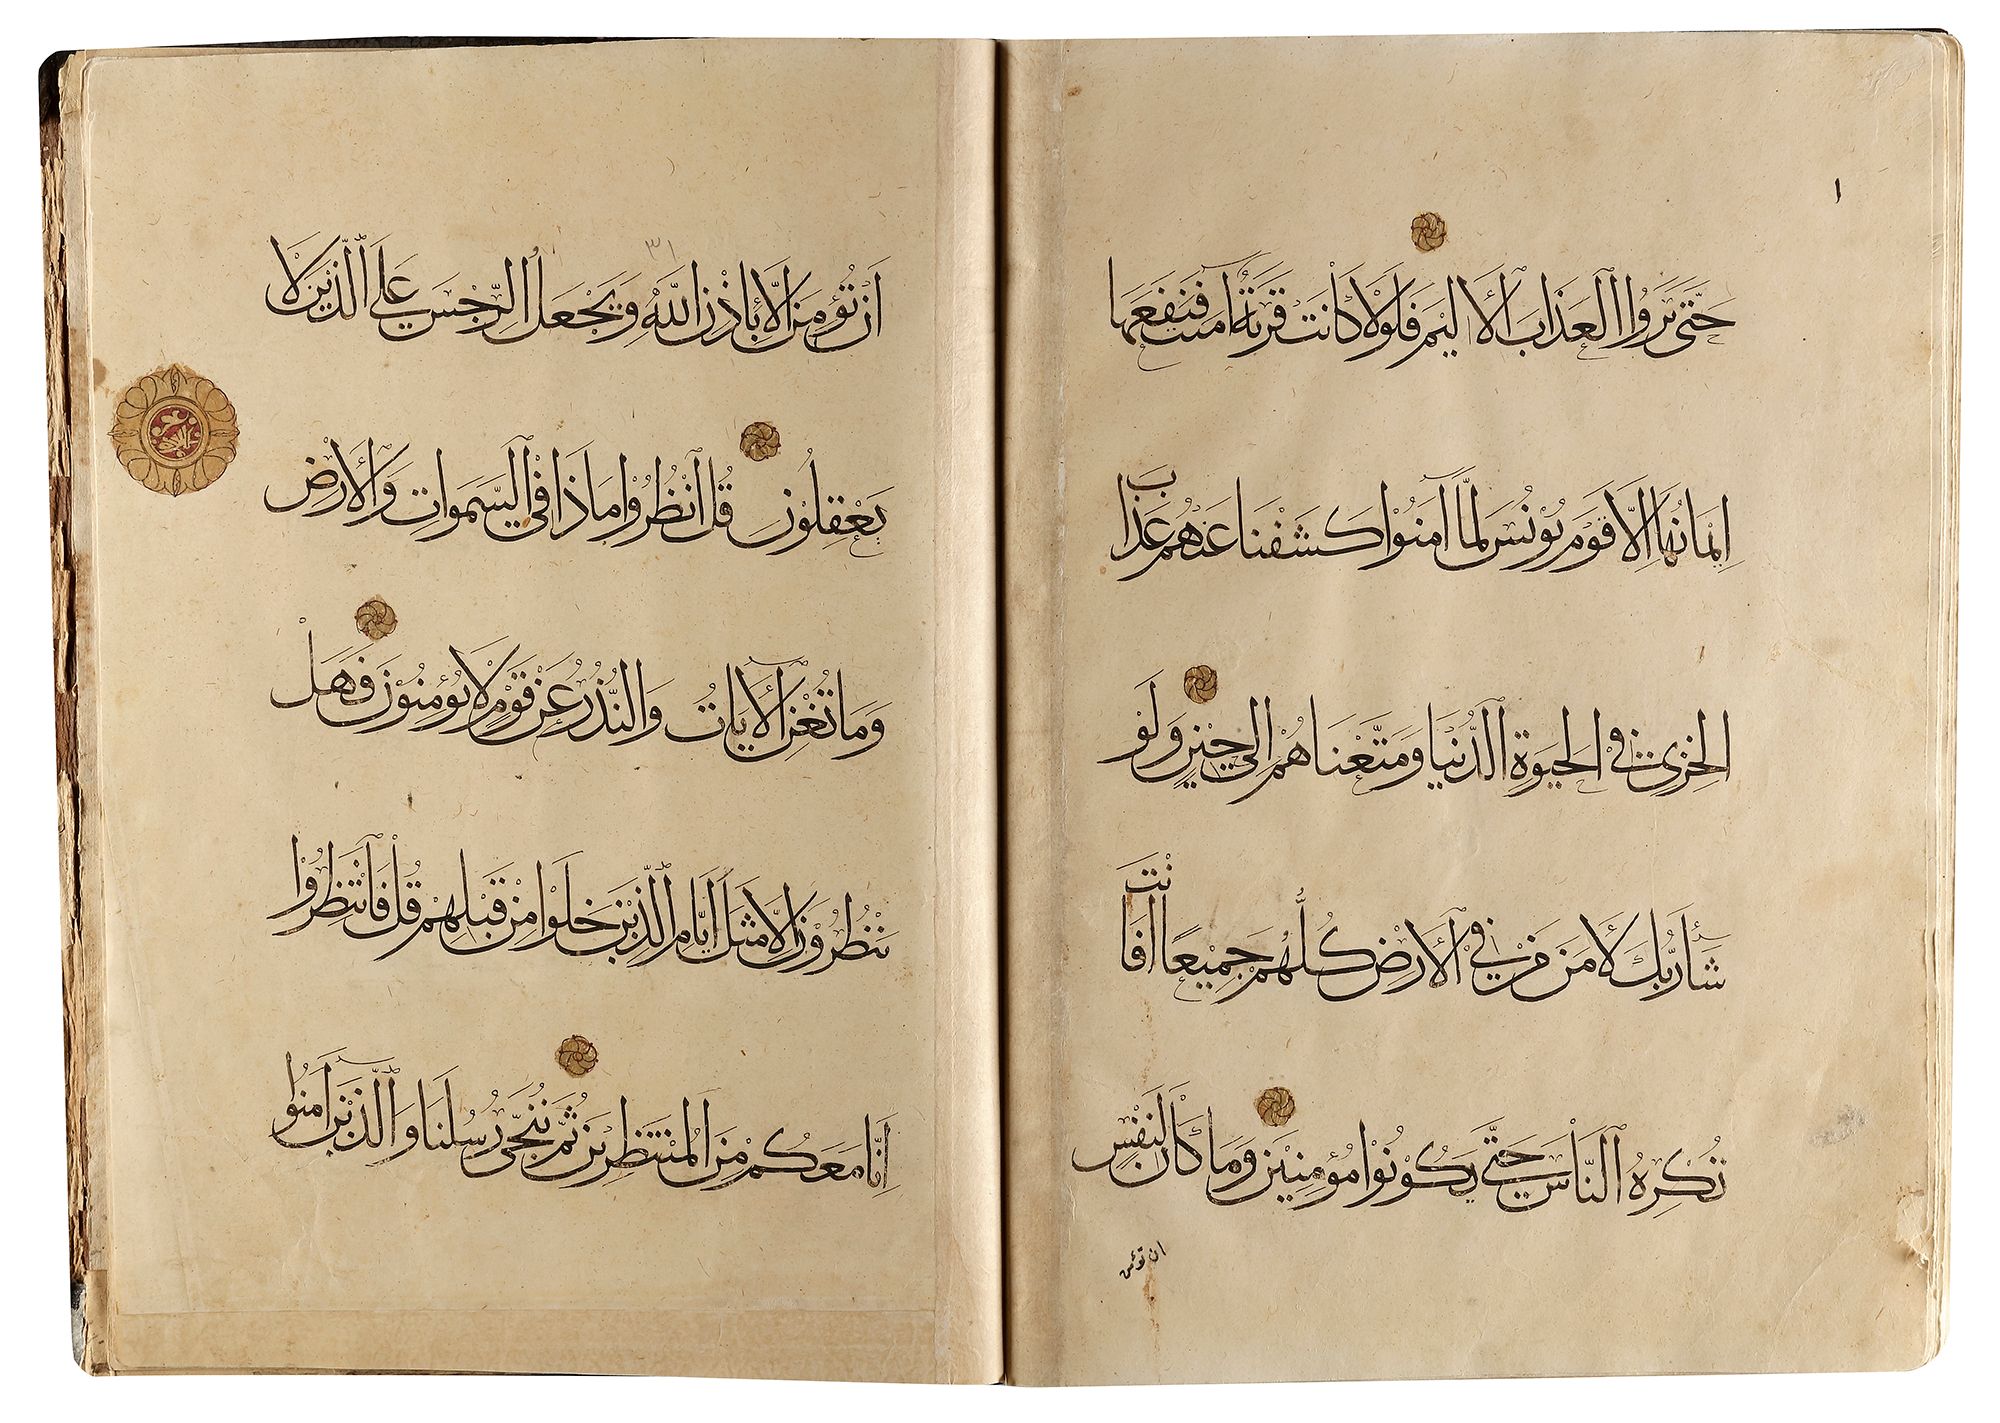 ١
حَتَّى يَرَوُا الْعَذَابَ الْأَلِيمَ فَلَوْلَا كَانَتْ قَرْيَةٌ آمَنَتْ فَنَفَعَهَا
إِيمَانُهَا إِلَّا قَوْمَ يُونُسَ لَمَّا آمَنُوا كَشَفْنَا عَنْهُمْ عَذَابَ
الْخِزْيِ فِي الْحَيٰوةِ الدُّنْيَا وَمَتَّعْنَاهُمْ إِلَى حِينٍ وَلَوْ
شَاءَ رَبُّكَ لَآمَنَ مَنْ فِي الْأَرْضِ كُلُّهُمْ جَمِيعًا أَفَأَنْتَ
تُكْرِهُ النَّاسَ حَتَّى يَكُونُوا مُؤْمِنِينَ وَمَا كَانَ لِنَفْسٍ
ان تؤمن
٣١
أَنْ تُؤْمِنَ إِلَّا بِإِذْنِ اللَّهِ وَيَجْعَلُ الرِّجْسَ عَلَى الَّذِينَ لَا
يَعْقِلُونَ قُلِ انْظُرُوا مَاذَا فِي السَّمَوَاتِ وَالْأَرْضِ
وَمَا تُغْنِي الْآيَاتُ وَالنُّذُرُ عَنْ قَوْمٍ لَا يُؤْمِنُونَ فَهَلْ
يَنْتَظِرُونَ إِلَّا مِثْلَ أَيَّامِ الَّذِينَ خَلَوْا مِنْ قَبْلِهِمْ قُلْ فَانْتَظِرُوا
إِنِّي مَعَكُمْ مِنَ الْمُنْتَظِرِينَ ثُمَّ نُنَجِّي رُسُلَنَا وَالَّذِينَ آمَنُوا